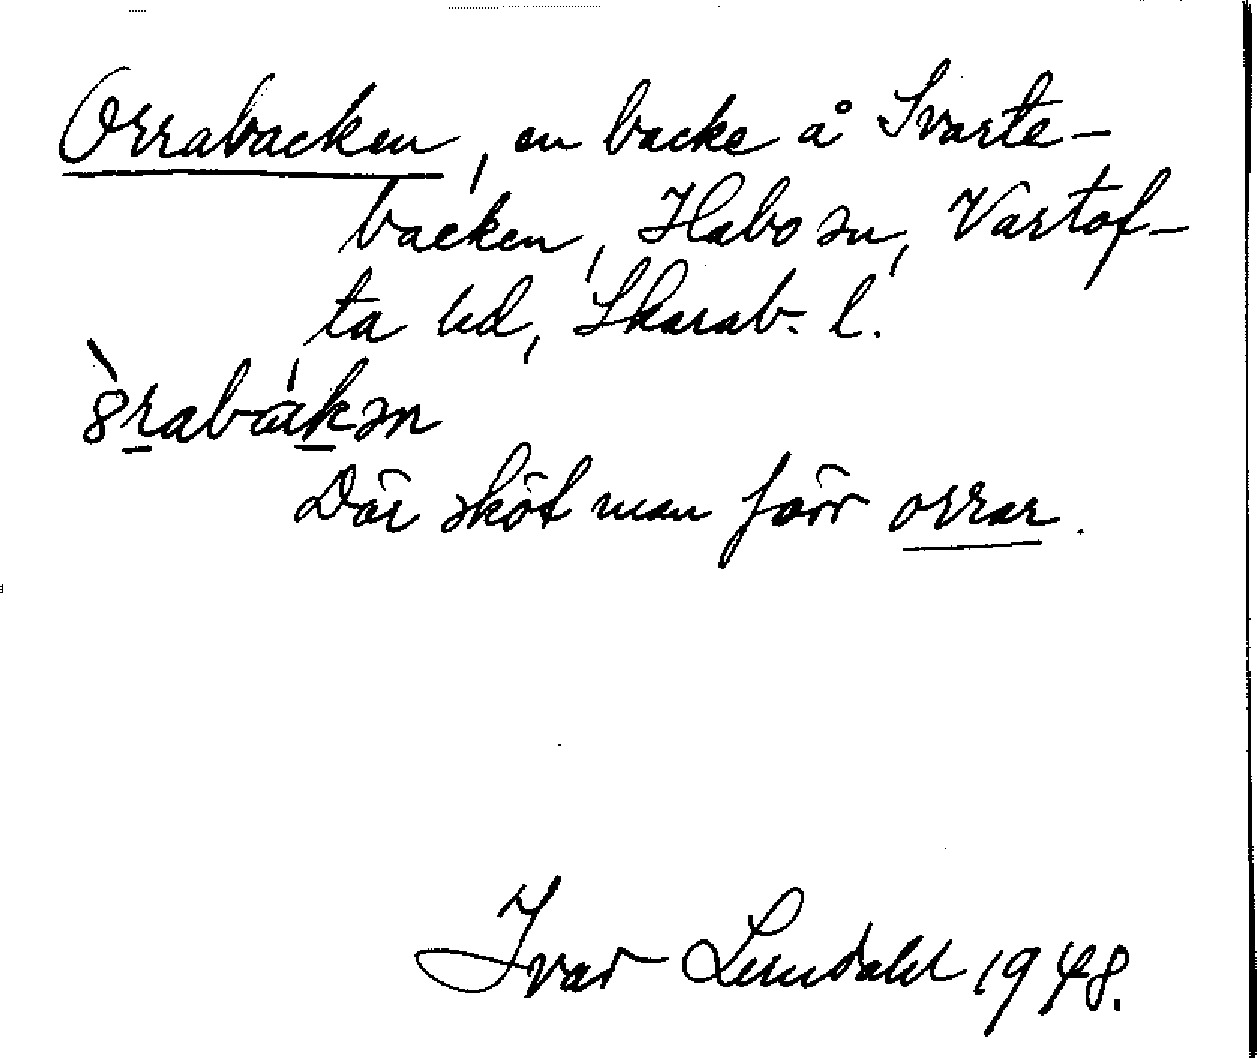 Orrabacken, en backe å Svarte-
backen, Habo sn, Vartof-
ta hd, Skarab. l.
Där sköt man förr orrar.
Ivar Lundahl 1948.